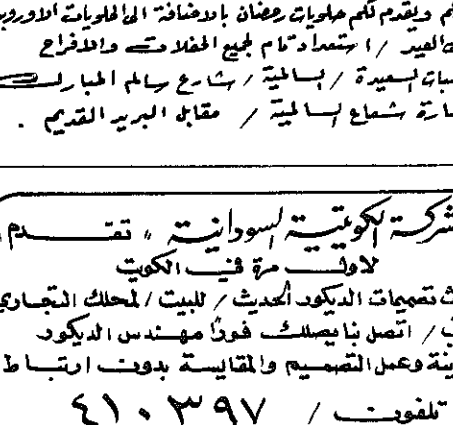 م ونقدم لكم حلويات رمضان بالاضافة الى الحلويات الاوروب
العيد / استعداد تام لجميع الحفلات والافراح
سبات السعيدة / السالمية / شارع سالم المبارك
مارة شعاع السالمية / مقابل البريد القديم .
شركة الكويتية السودانية ، تقدم
لاول مرة في الكويت
ث تصميمات الديكور الحديث / للبيت / لمحلك التجاري
/ اتصل بنا يصلك فورًا مهندس الديكور
ينة وعمل التصميم والمقايسة بدون ارتباط
تلفون / ٤١٠٣٩٧